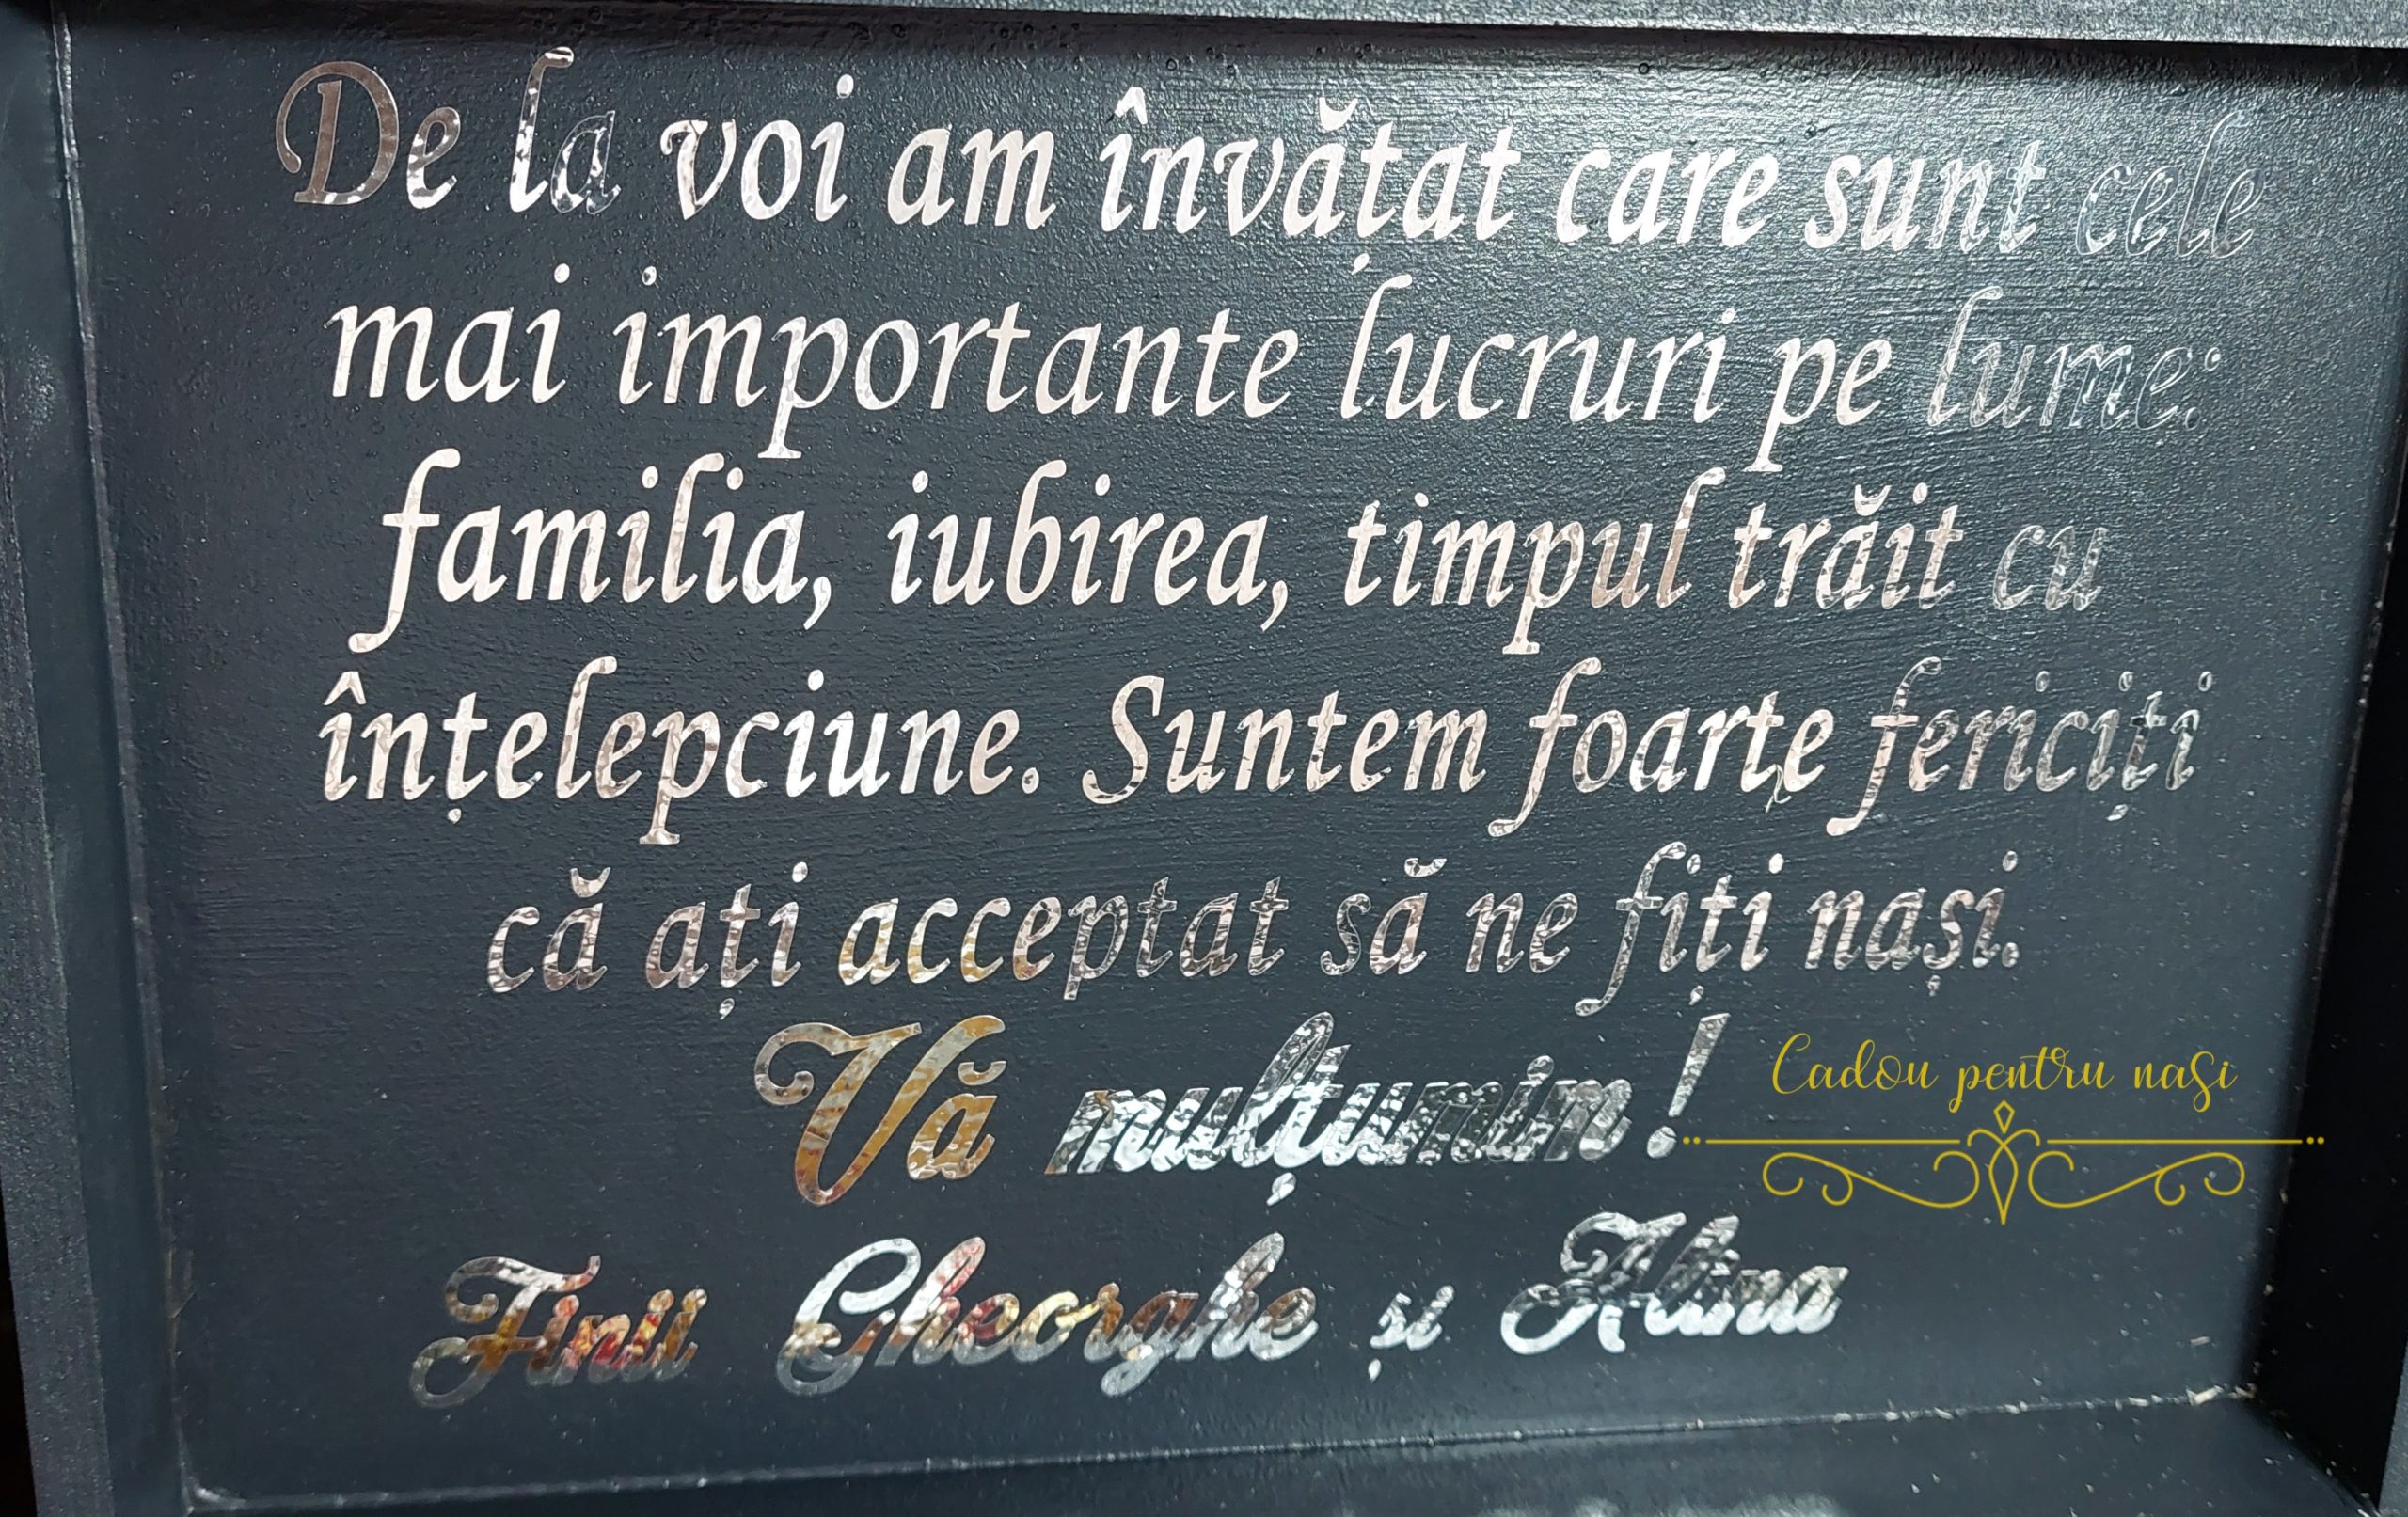 De la voi am învățat care sunt cele
mai importante lucruri pe lume:
familia, iubirea, timpul trăit cu
înțelepciune. Suntem foarte fericiți
că ați acceptat să ne fiți nași.
Vă mulțumim!
Cadou pentru nași
Finii Gheorghe și Alina